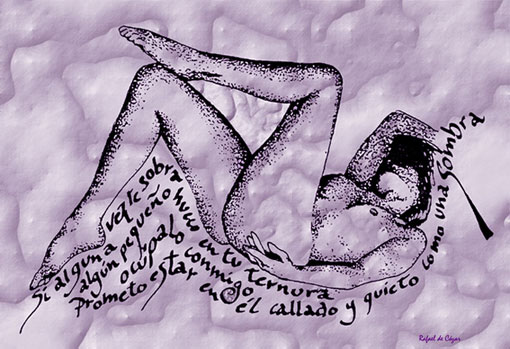 Si alguna vez te sobra
algun pequeño hueco en tu ternura
ocupalo conmigo
Prometo estar en él callado y quieto como una sombra
Rafael de Cózar